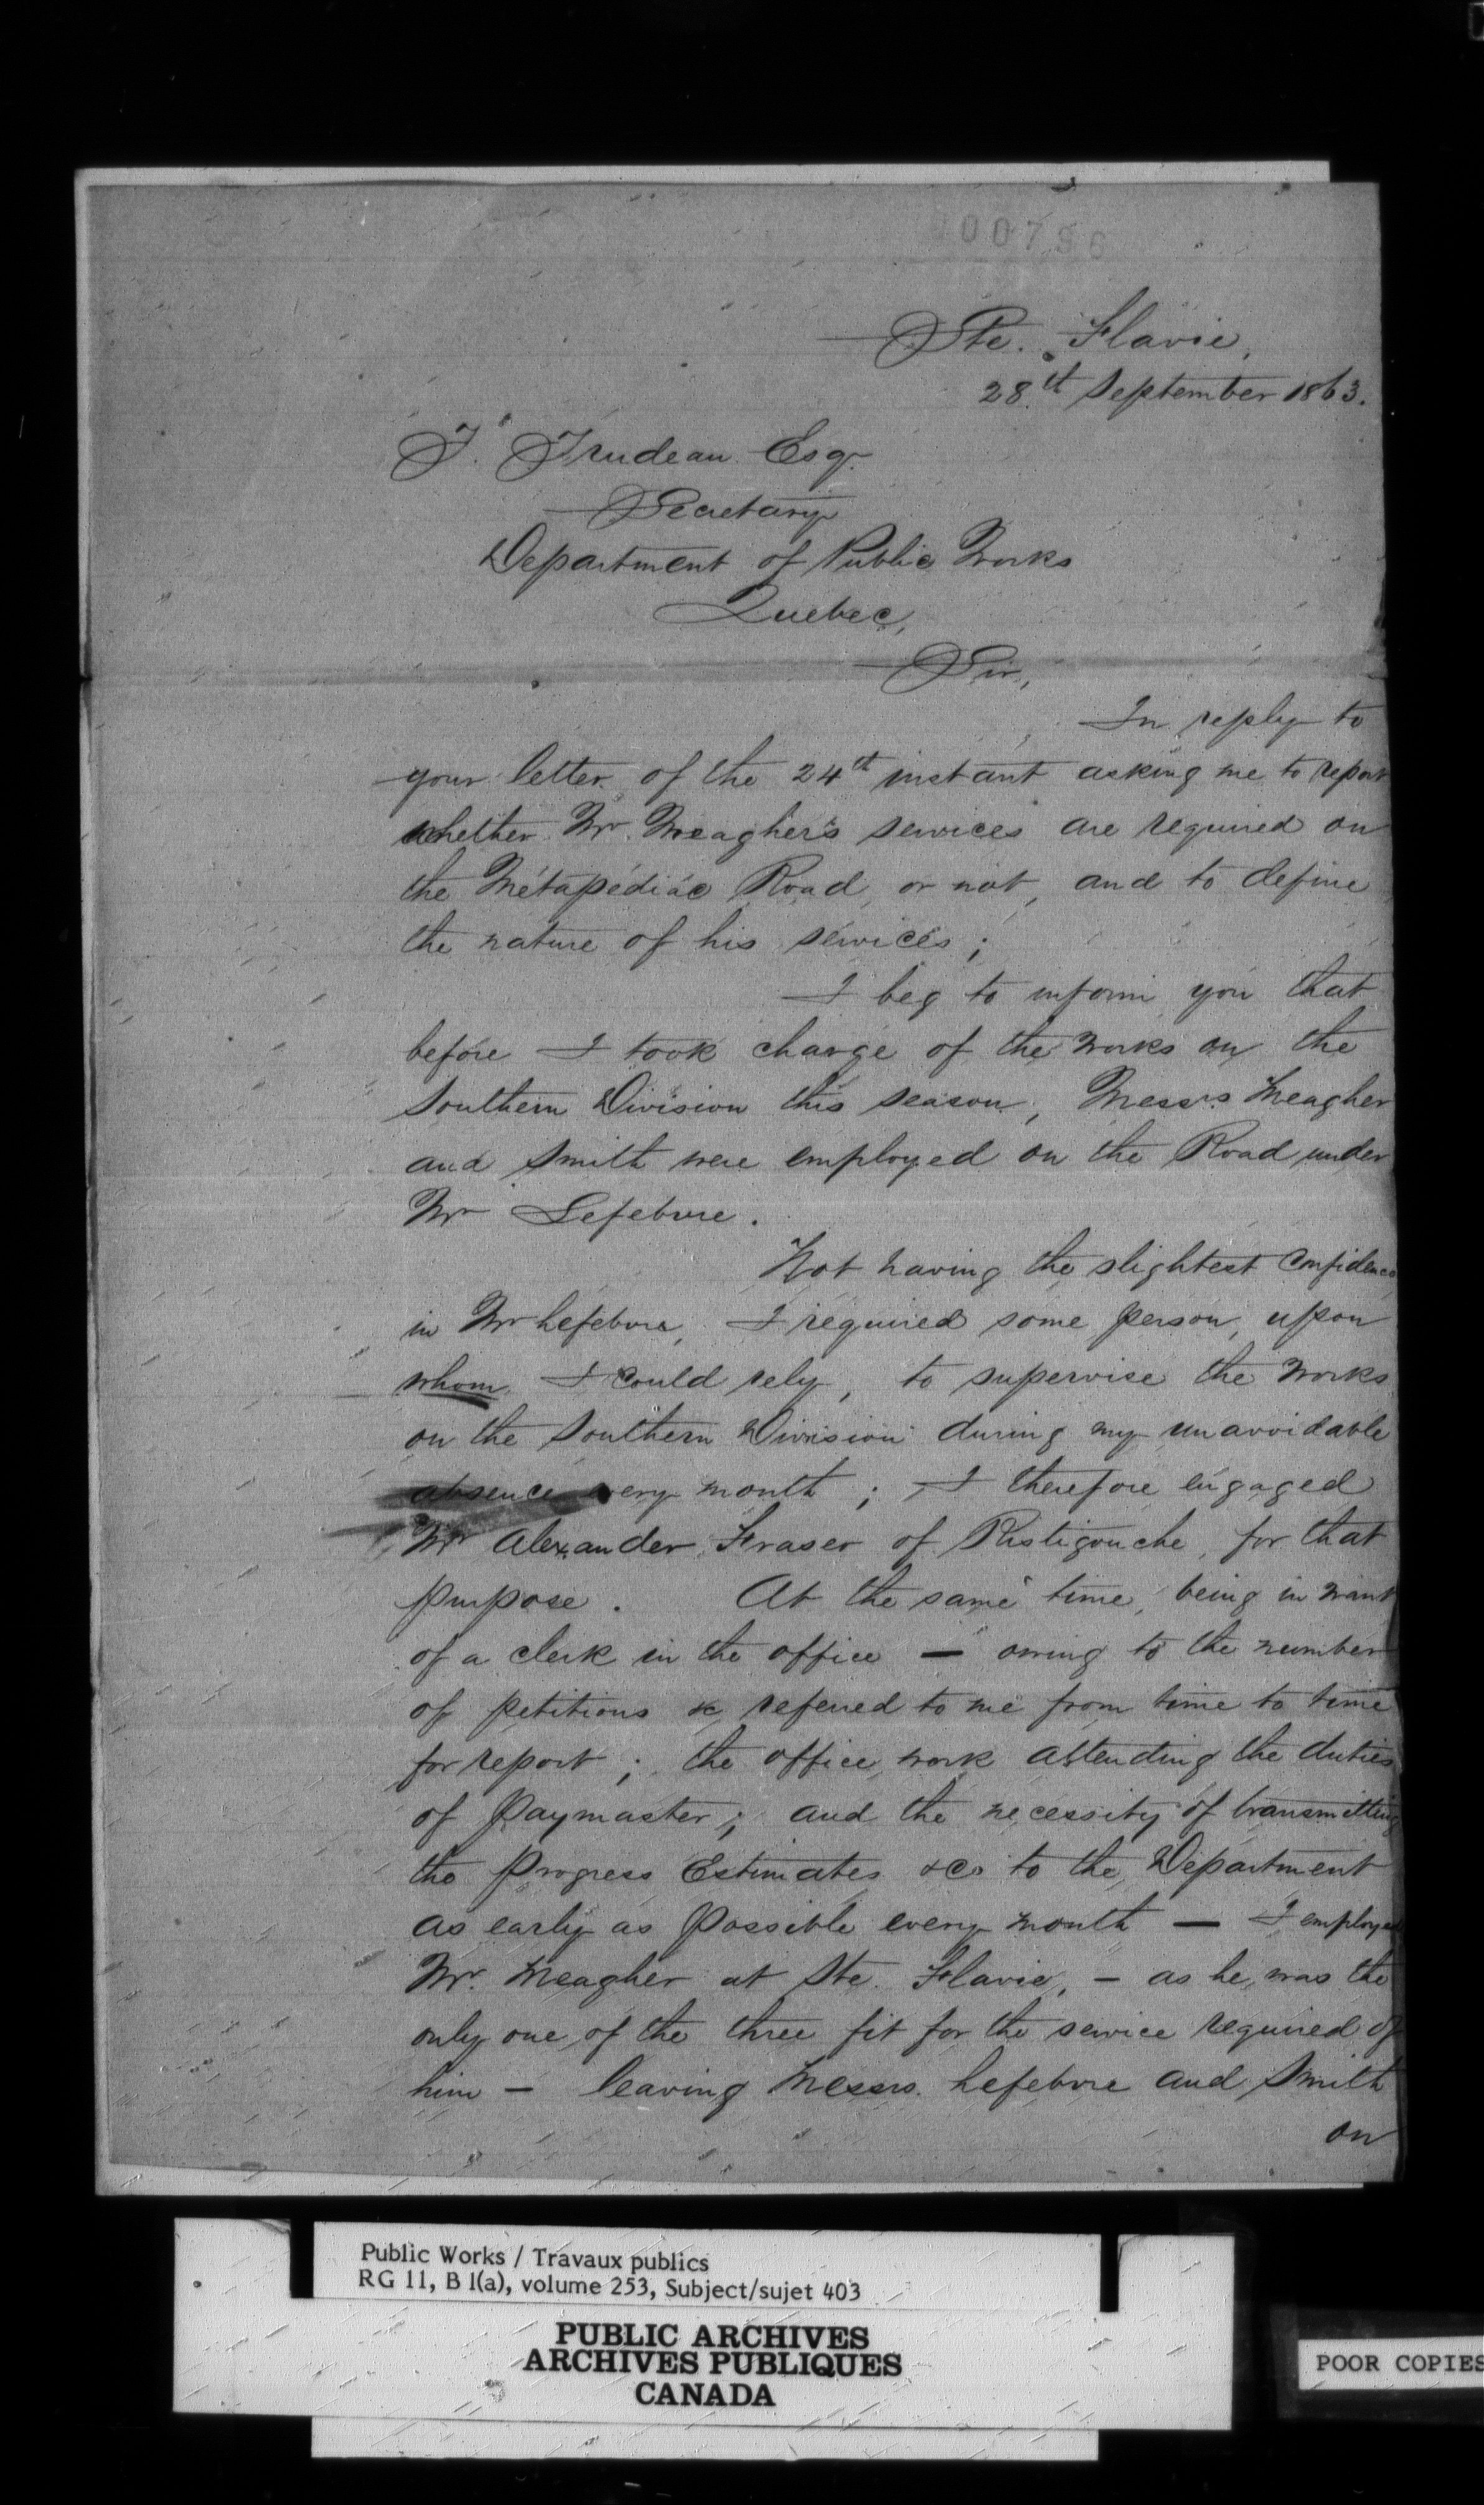 000796
Ste. Flavie,
28th September 1863.
T. Trudeau Esqr
Secretary
Department of Public Works
Quebec,
Sir,
In reply to
your letter of the 24th instant asking me to report
whether Mr. Meagher's services are required on
the Métapédiac Road, or not, and to define
the nature of his services;
I beg to inform you that
before I took charge of the works on the
Southern Division this season, Messrs Meagher
and Smith were employed on the Road under
Mr Lefebvre.
Not having the slightest confidence
in Mr Lefebvre, I required some person, upon
whom I could rely, to supervise the works
on the Southern Division during my unavoidable
absence every month; I therefore engaged
Mr Alexander Fraser of Ristigouche, for that
purpose. At the same time, being in want
of a clerk in the office — owing to the number
of petitions &c referred to me from time to time
for report; the office work attending the duties
of Paymaster; and the necessity of transmitting
the Progress Estimates &c. to the Department
as early as possible every month — I employed
Mr. Meagher at Ste. Flavie, - as he was the
only one of the three fit for the service required of
him - leaving Messrs. Lefebvre and Smith
on
Public Works / Travaux publics
RG 11, B 1(a), volume 253, Subject/sujet 403
PUBLIC ARCHIVES
ARCHIVES PUBLIQUES
CANADA
POOR COPIES